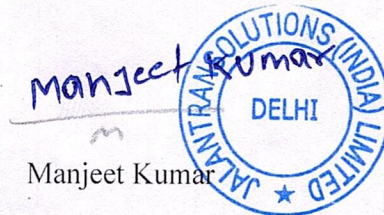 Manjeet Kumar
JALANTRANSOLUTIONS (INDIA) LIMITED
DELHI
Manjeet Kumar